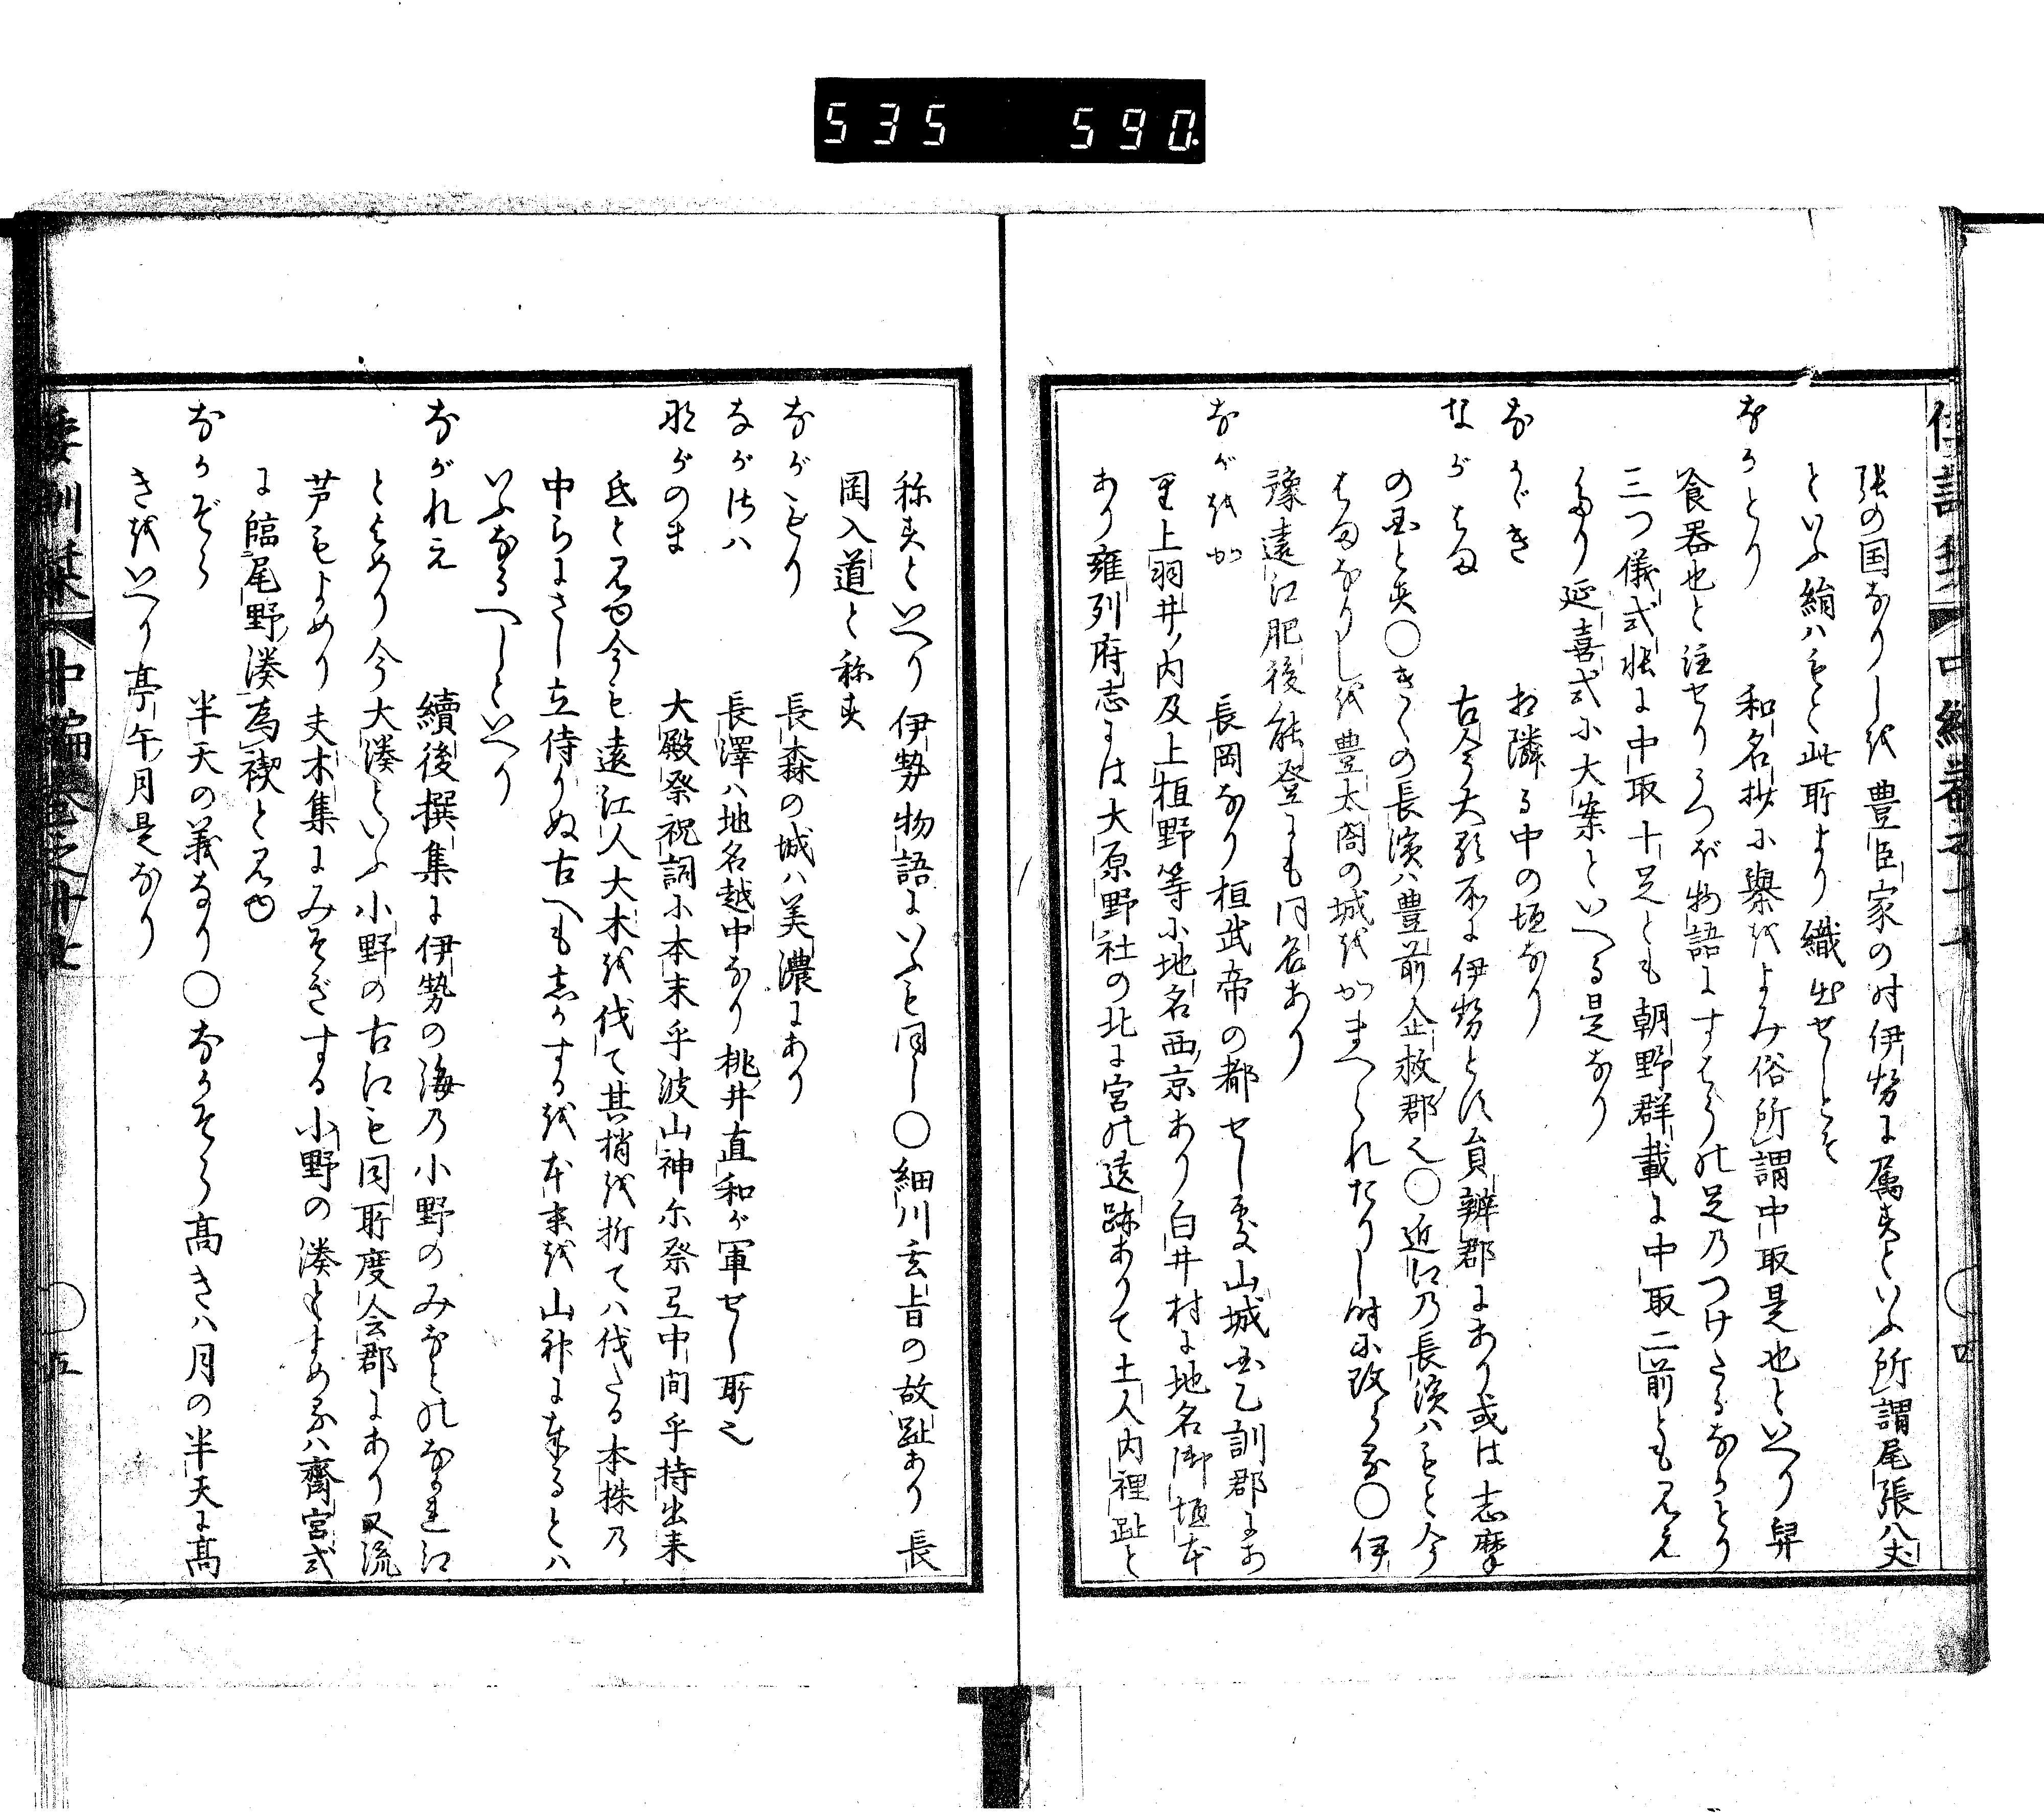 535 590
張の国なりしを豊臣家の時伊勢に属すといふ所謂尾張八丈
といふ絹ハもと此所より織出せしとそ
なかとり 和名抄に擧をよみ俗所謂中取是也といへり
食器也と注せりうつぼ物語にすはうの足のつけたるなかとり
三つ儀式帳に中取十足とも朝野群載に中取二前とも見え
たり延喜式に大案といへる是なり
ながき お隣る中の垣なり
ながはま 古今大歌所に伊勢とす員辨郡にあり或は志摩
の国とす○きくの長濱ハ豊前企救郡也○近江の長濱ハもと今
はまなりしを豊太閤の城をかまへられたりし時に改らる○伊
豫遠江肥後能登にも同名あり
ながをか 長岡なり桓武帝の都せし處山城国乙訓郡にあ
り上羽井ノ内及上植野等に地名西京あり白井村に地名御垣本
あり雍州府志には大原野社の北に宮の遺跡ありて土人内裡趾と
称すといへり伊勢物語にいふも同し○細川玄旨の故趾あり長
岡入道と称す
ながもり 長森の城ハ美濃にあり
ながさハ 長澤ハ地名越中なり桃井直和が軍せし所也
ながのま 大殿祭祝詞に本末乎波山神尓祭弖中間乎持出来
氐と見ゆ今も遠江人大木を伐て其梢を折てハ伐たる本株の
中らにさし立侍りぬ古へも志かするを本末を山神に奉るとハ
いふなるへしといへり
ながれえ 續後撰集に伊勢の海乃小野のみなとのなかれ江
とよめり今大湊といふ小野の古江も同所度会郡にあり又流
芦もよめり夫木集にみそぎする小野の湊とよめるハ齋宮式
に臨尾野湊為禊と見ゆ
なかぞら 半天の義なり○なかそら高き八月の半天に高
きをいへり亭午月是なり
倭訓栞 中編巻之十七 ○五